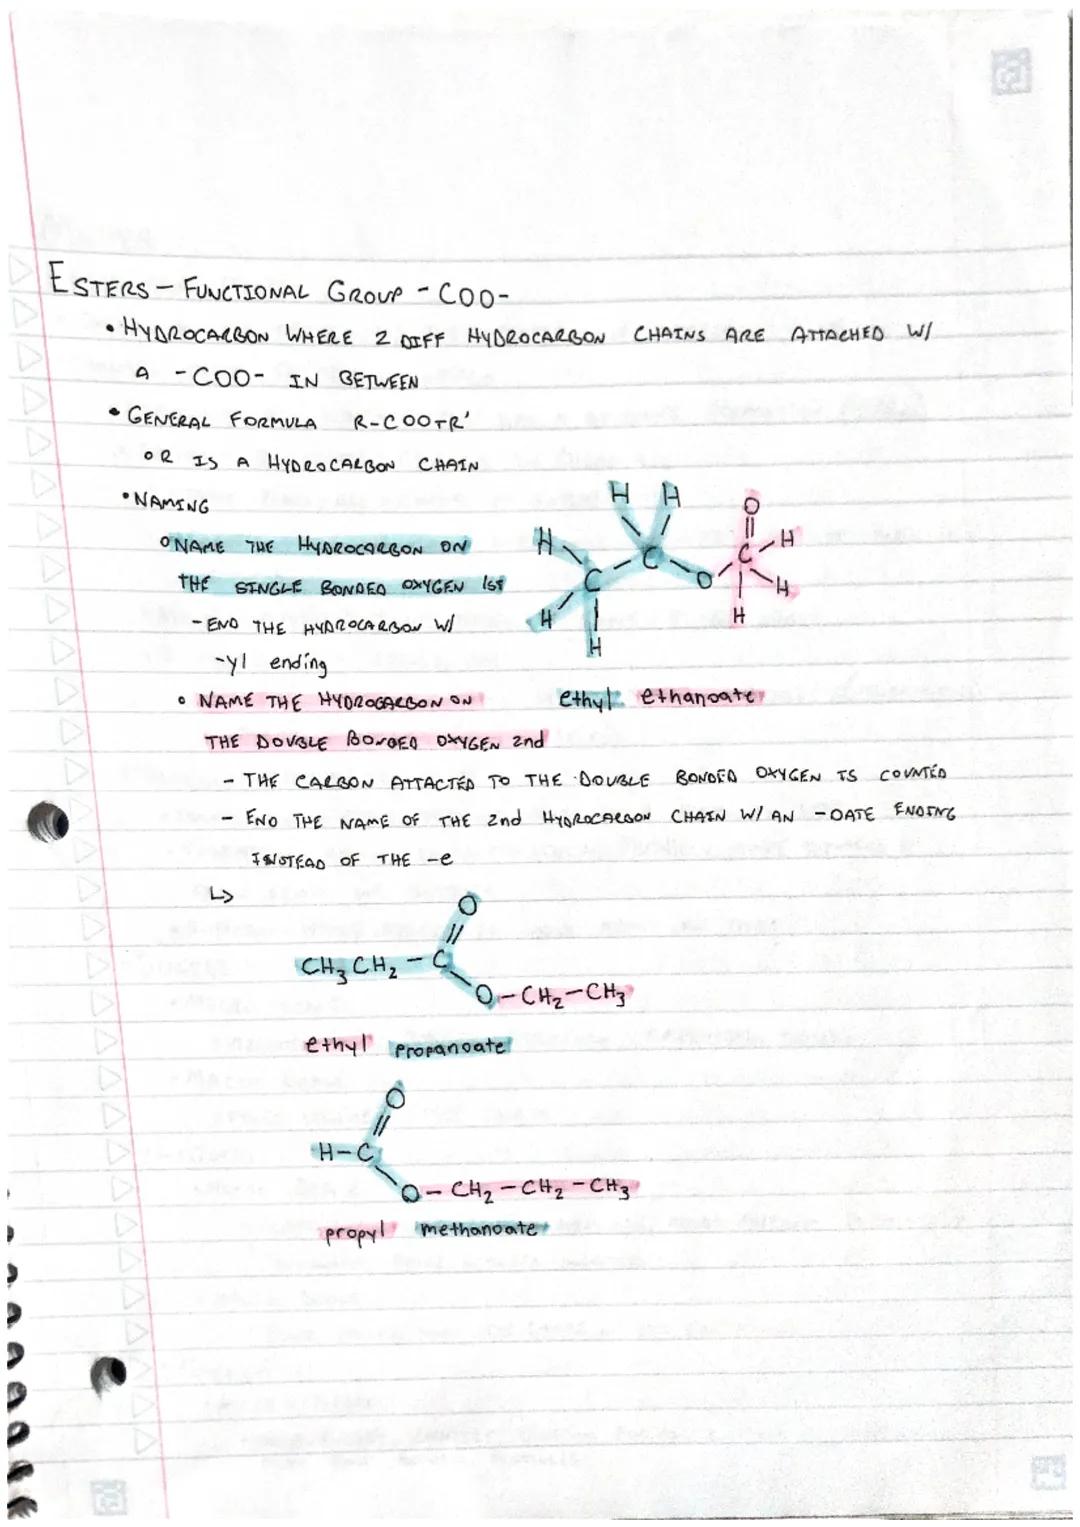 ESTERS - FUNCTIONAL GROUP - COO-
• HYDROCARBON WHERE 2 DIFF HYDROCARBON CHAINS ARE ATTACHED W/
A -COO- IN BETWEEN
• GENERAL FORMULA R-COO-R'
○ R IS A HYDROCARBON CHAIN
• NAMING
○ NAME THE HYDROCARBON ON
THE SINGLE BONDED OXYGEN 1st
- END THE HYDROCARBON W/
-yl ending
H H O
H C C H
C O H
H H
H
ethyl ethanoate
○ NAME THE HYDROCARBON ON
THE DOUBLE BONDED OXYGEN 2nd
- THE CARBON ATTACTED TO THE DOUBLE BONDED OXYGEN IS COUNTED
- END THE NAME OF THE 2nd HYDROCARBON CHAIN W/ AN -OATE ENDING
INSTEAD OF THE -e
↳
O
CH₃CH₂-C
O-CH₂-CH₃
ethyl propanoate
O
H-C
O-CH₂-CH₂-CH₃
propyl methanoate